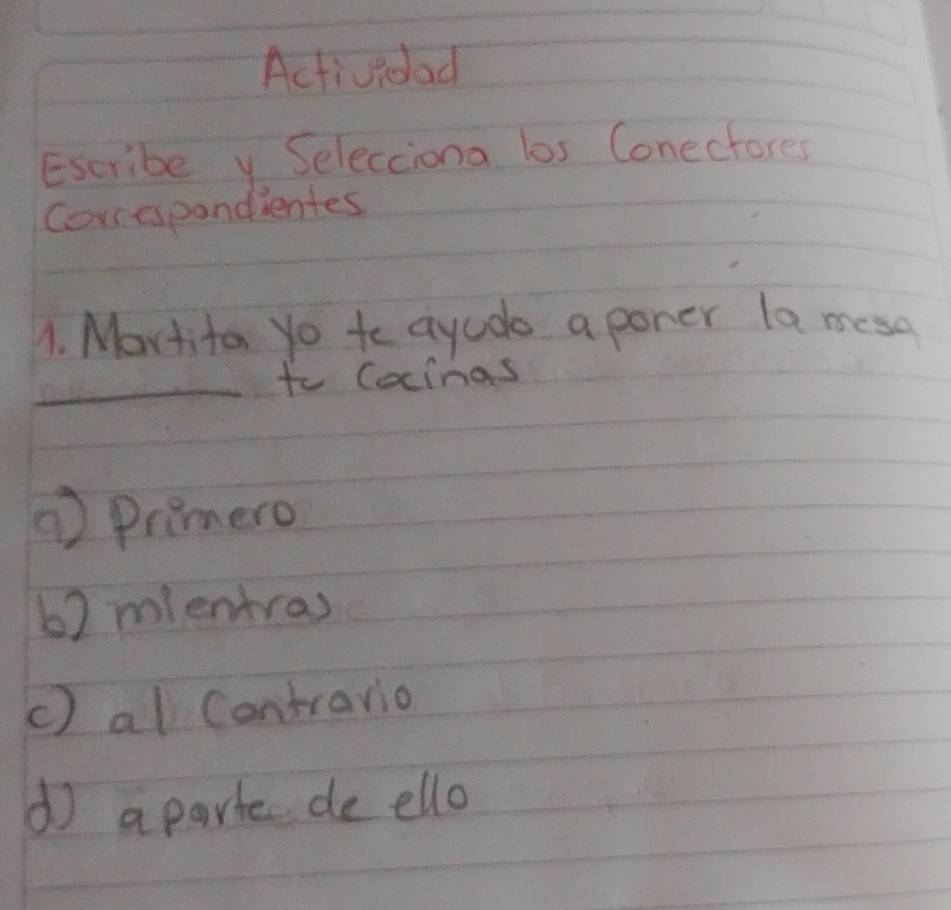 Actividad
Escribe y Selecciona los Conectores
Correspondientes
1. Martita yo te ayudo a poner la mesa
________ tu Cocinas
a) Primero
b) mientras
c) al Contrario
d) aparte de ello